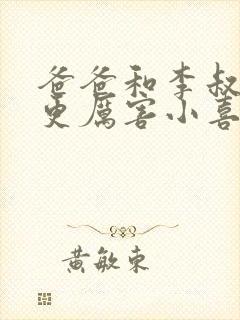 爸爸和李叔
更厲害小喜
黃敏東